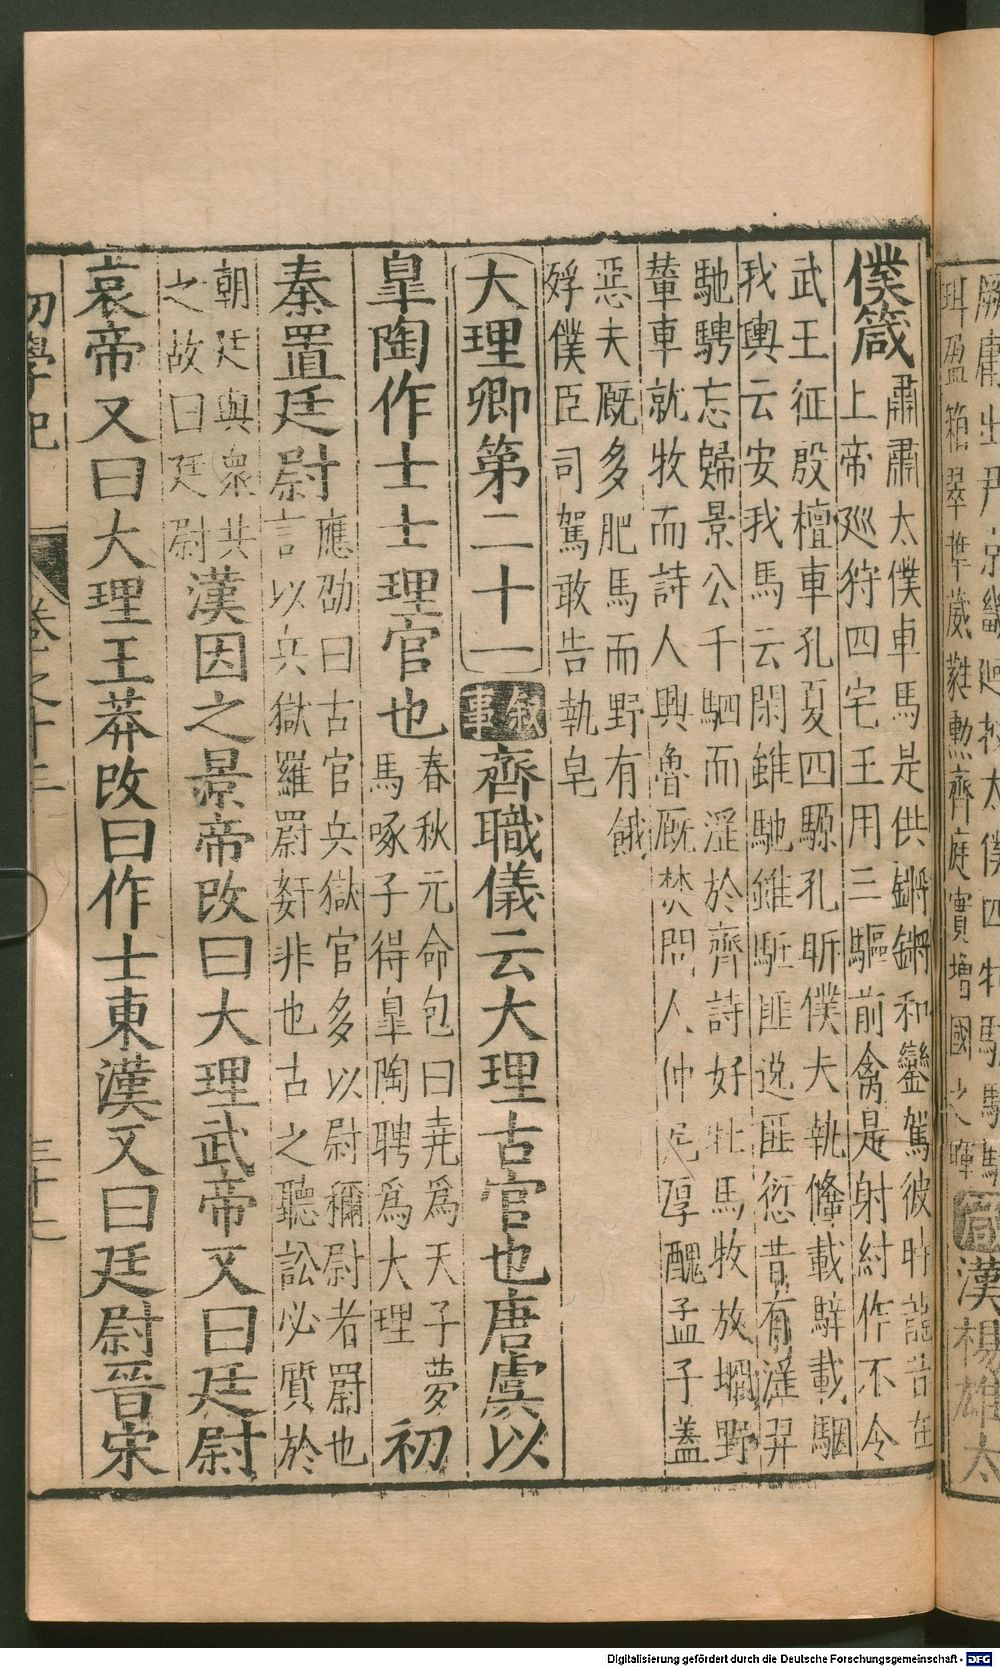 厥庸出尹京畿廻授太僕四牡騤騤
珥盈箱翠華葳蕤勲齊庭實増國之暉
箴
漢楊雄太
僕箴
肅肅太僕車馬是供鏘鏘和鑾駕彼時龍昔在
上帝巡狩四宅王用三驅前禽是射紂作不令
武王征殷檀車孔夏四騵孔昕僕夫執鞗載騂載駰
我輿云安我馬云閑雖馳雖駈匪逸匪愆昔有淫羿
馳騁忘歸景公千駟而淫於齊詩好牡馬牧放坰野
輦車就牧而詩人興魯厩焚問人仲尼厚醜孟子蓋
惡夫厩多肥馬而野有餓
殍僕臣司駕敢告執皂
大理卿第二十一
敘事
齊職儀云大理古官也唐虞以
皐陶作士士理官也
春秋元命包曰尭爲天子夢
馬啄子得皐陶聘爲大理
初
秦置廷尉
應劭曰古官兵獄官多以尉稱尉者罻也
言以兵獄羅罻姧非也古之聽訟必質於
朝廷與衆共
之故曰廷尉
漢因之景帝改曰大理武帝又曰廷尉
哀帝又曰大理王莽改曰作士東漢又曰廷尉晉宋
初學記
卷之十二
三十七
Digitalisierung gefördert durch die Deutsche Forschungsgemeinschaft - DFG